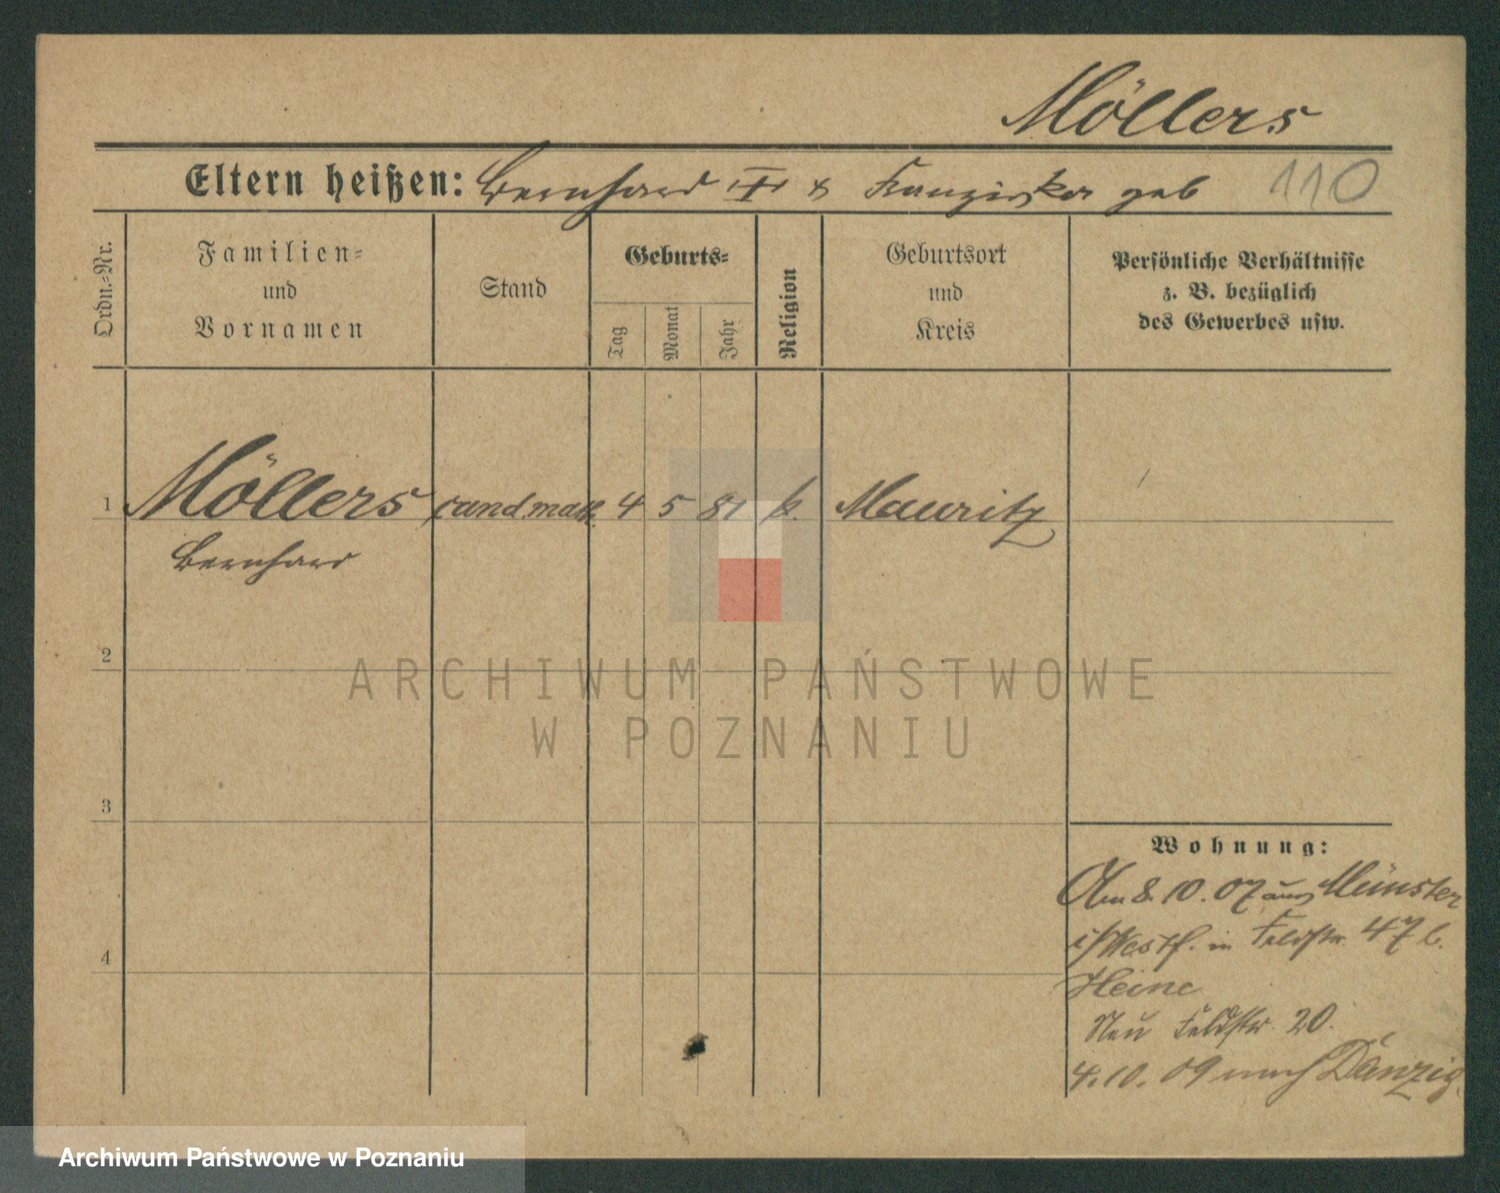 Möllers
Eltern heißen: Bernhard & Franziska geb 110
Ordn.=Nr.
Familien=
und
Vornamen
Stand
Geburts=
Tag
Monat
Jahr
Religion
Geburtsort
und
Kreis
Persönliche Verhältnisse
z. B. bezüglich
des Gewerbes usw.
1 Möllers cand. math. 4 5 81 k. Mauritz
Bernhard
2
3
4
Wohnung:
Am 8. 10. 07 aus Münster
i/Westf. in Feldstr. 47 b.
Heine
Neu Feldstr. 20.
4.10.09 nach Danzig.
ARCHIWUM PAŃSTWOWE
W POZNANIU
Archiwum Państwowe w Poznaniu